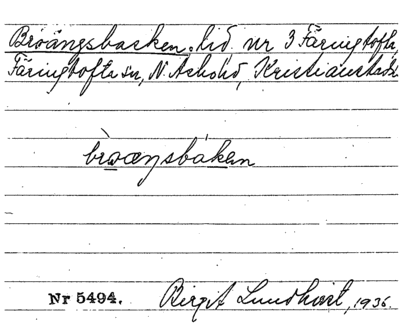 Broängsbacken, lid. nr 3 Färingtofta,
Färingtofta sn, N. Åsbo hd, Kristianstads l.
bròæŋsbáken
Nr 5494.
Birgit Lundkvist, 1936.